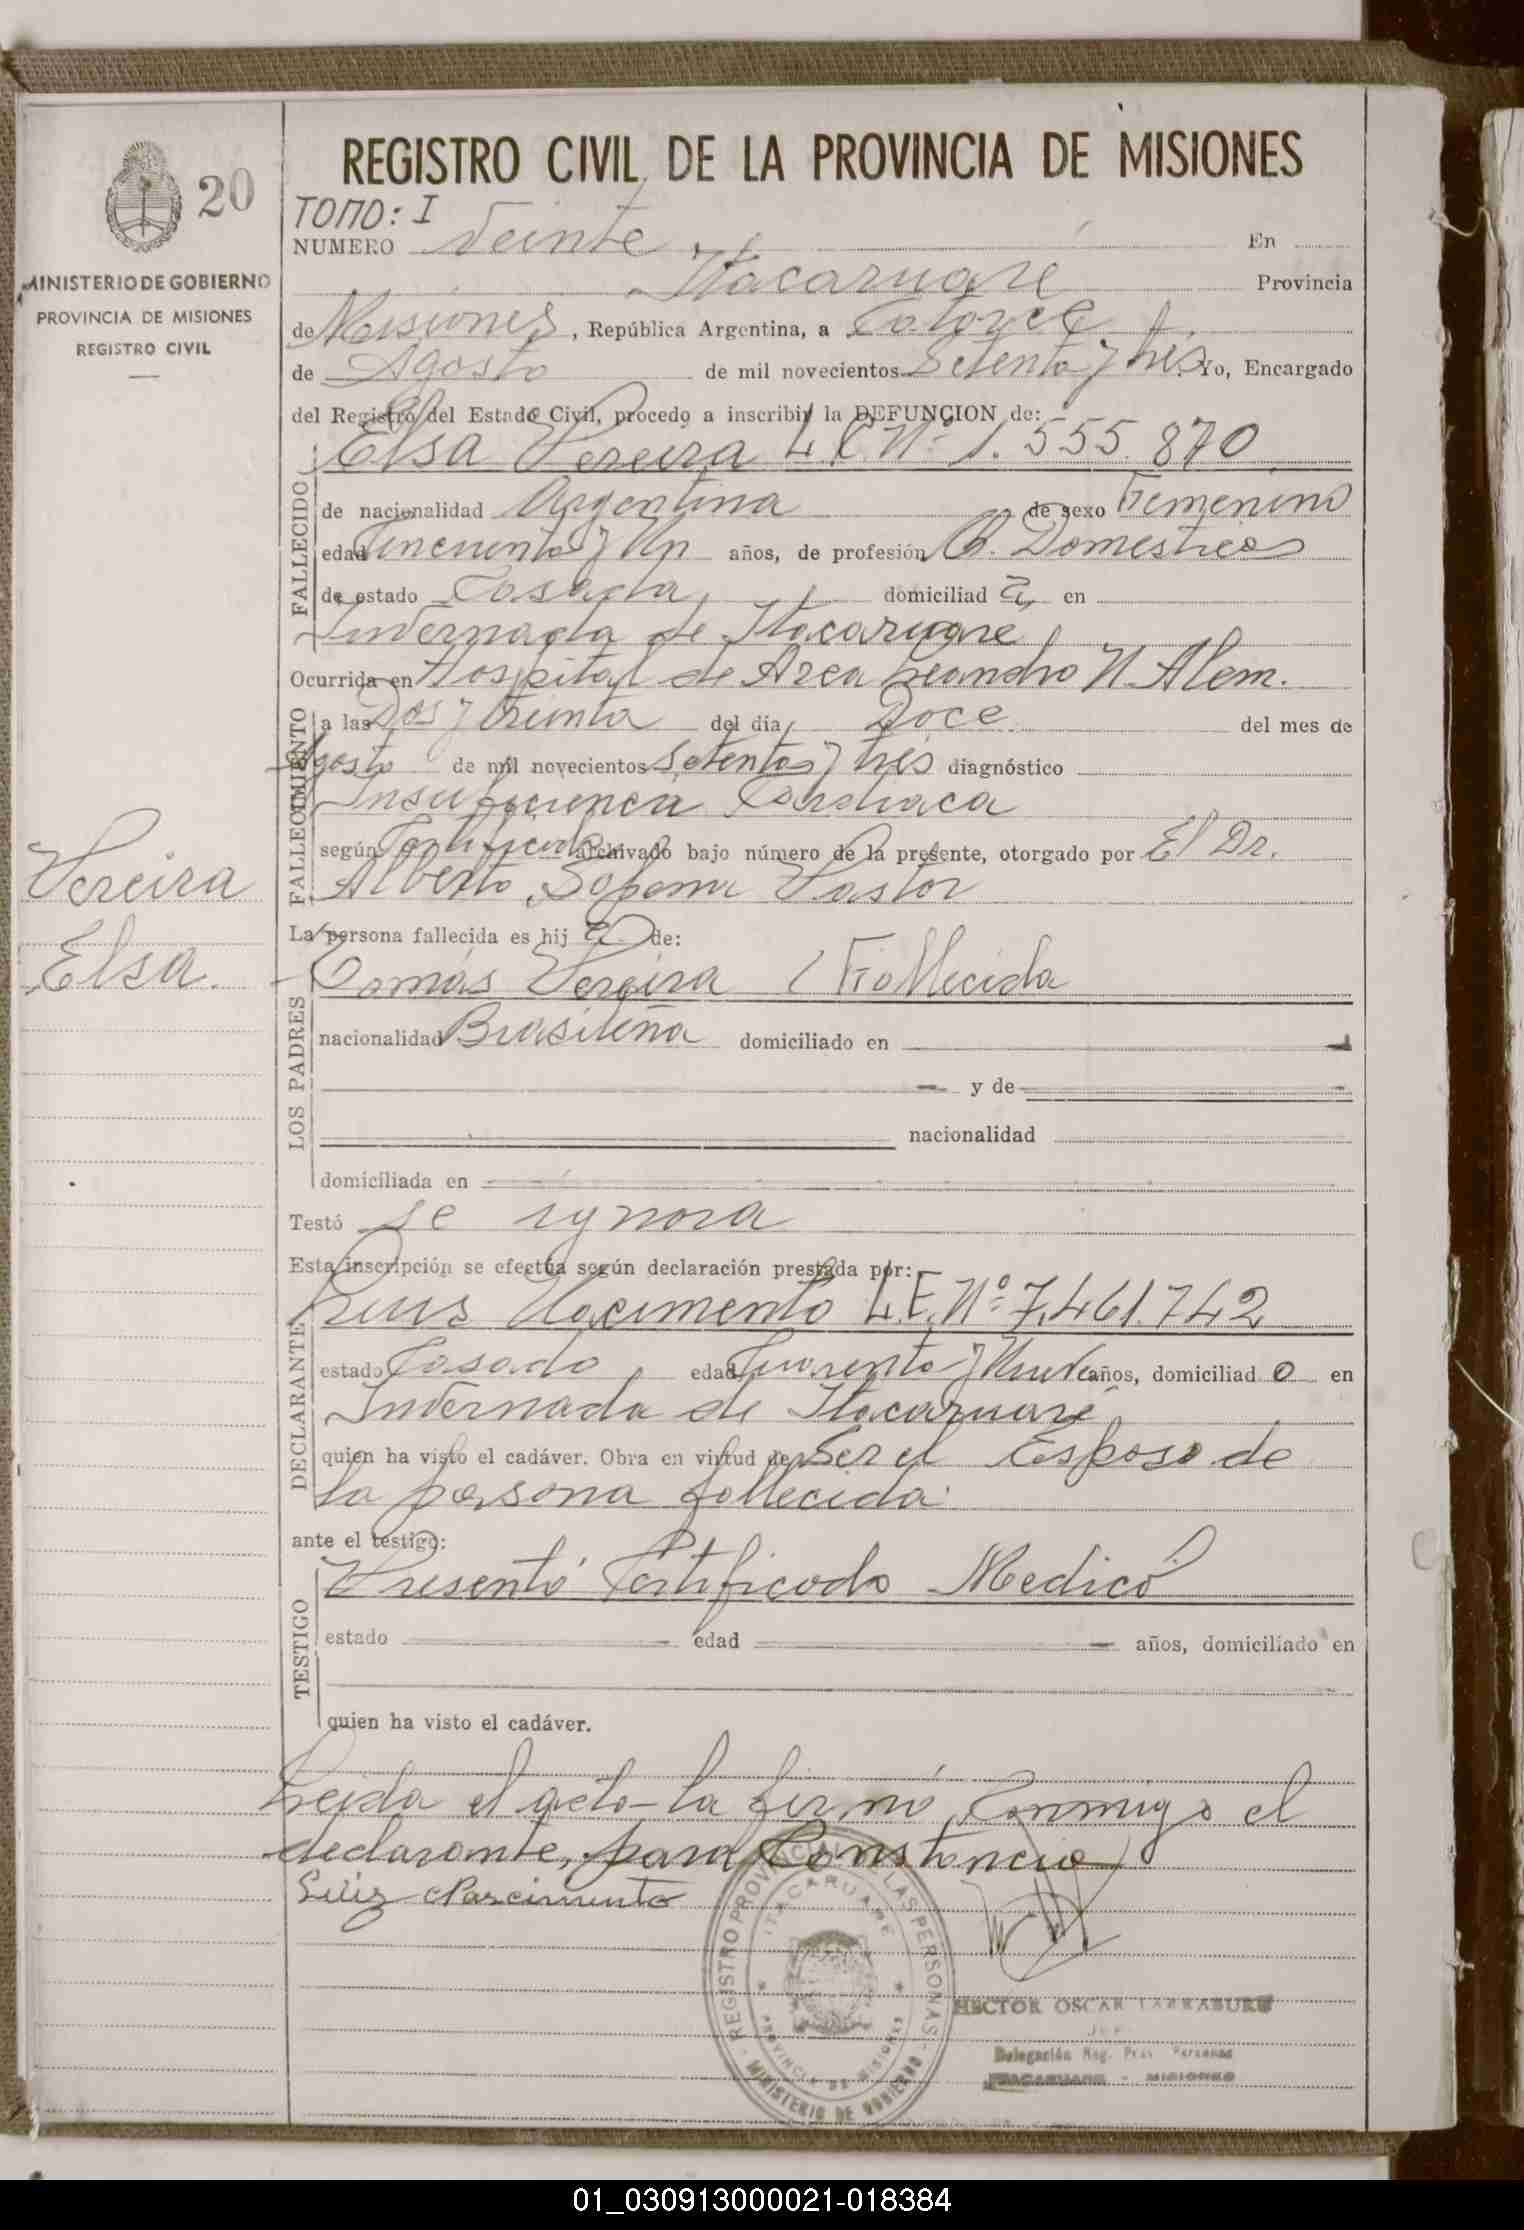 REGISTRO CIVIL DE LA PROVINCIA DE MISIONES
20
MINISTERIO DE GOBIERNO
PROVINCIA DE MISIONES
REGISTRO CIVIL
TOMO: I
NUMERO Veinte En
Itacaruare Provincia
de Misiones, República Argentina, a Catorce
de Agosto de mil novecientos Setenta y tres Yo, Encargado
del Registro del Estado Civil, procedo a inscribir la DEFUNCION de:
FALLECIDO
Elsa Pereira L.C. Nº 1.555.870
de nacionalidad Argentina de sexo Femenino
edad Cincuenta y Un años, de profesión Q. Domesticos
de estado Casada domiciliad a en
Invernada de Itacaruare
Ocurrida en Hospital de Area Leandro N. Alem.
FALLECIMIENTO
a las Dos y treinta del día Doce del mes de
Agosto de mil novecientos setenta y tres diagnóstico
Insuficiencia Cardiaca
según Certificado archivado bajo número de la presente, otorgado por El Dr.
Alberto Pastor
Pereira
Elsa.
La persona fallecida es hij a de:
LOS PADRES
Tomás Pereira (Fallecida
nacionalidad Brasileña domiciliado en
y de
nacionalidad
domiciliada en
Testó se ignora
Esta inscripción se efectúa según declaración prestada por:
DECLARANTE
Luis Nacimento L.E. Nº 7.461.742
estado Casado edad Cuarenta y Nueve años, domiciliad o en
Invernada de Itacaruaré
quien ha visto el cadáver. Obra en virtud de Ser el Esposo de
la persona fallecida
ante el testigo:
TESTIGO
Presentó Certificado Medico
estado edad años, domiciliado en
quien ha visto el cadáver.
Leida el acto la firmó Conmigo el
declarante, para Constancia
Luiz Nascimento
REGISTRO PROVINCIAL DE LAS PERSONAS
ITACARUARE
PROVINCIA DE MISIONES
MINISTERIO DE GOBIERNO
HECTOR OSCAR LARRABURU
JEFE
Delegación Reg. Prov. Personas
ITACARUARE - MISIONES
01_030913000021-018384